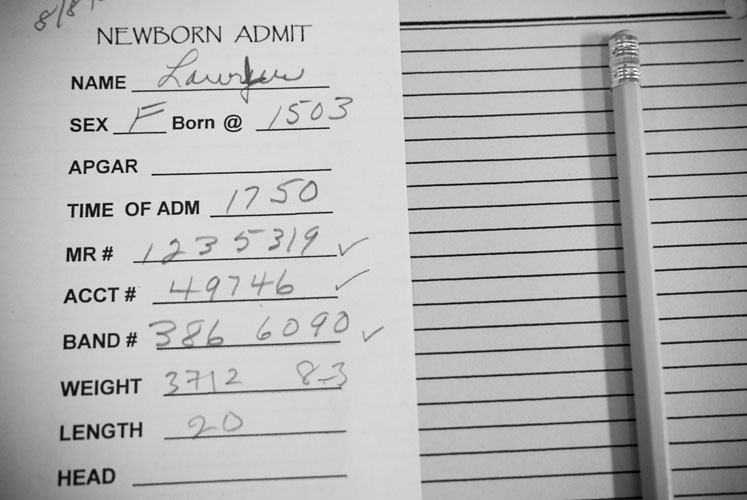 8/8/
NEWBORN ADMIT
NAME
SEX F Born @ 1503
APGAR
TIME OF ADM 1750
MR # 1235319 ✓
ACCT # 49746 ✓
BAND # 386 6090 ✓
WEIGHT 3712 8-3
LENGTH 20
HEAD